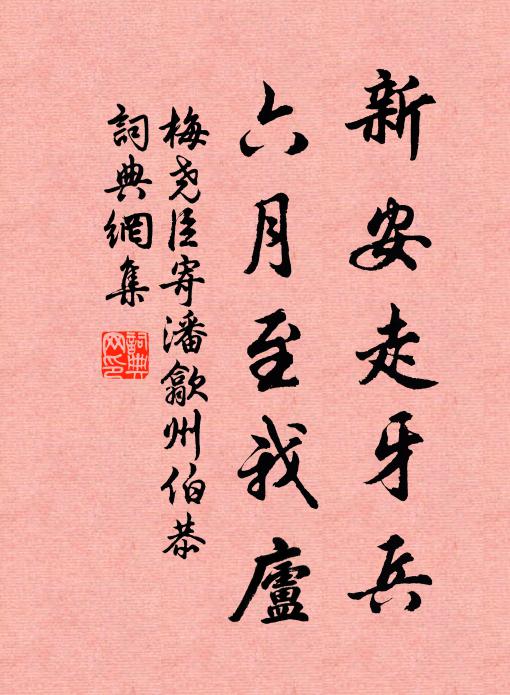 新安走牙兵
六月至我廬
梅堯臣寄潘歙州伯恭
詞典網集
詞典网印